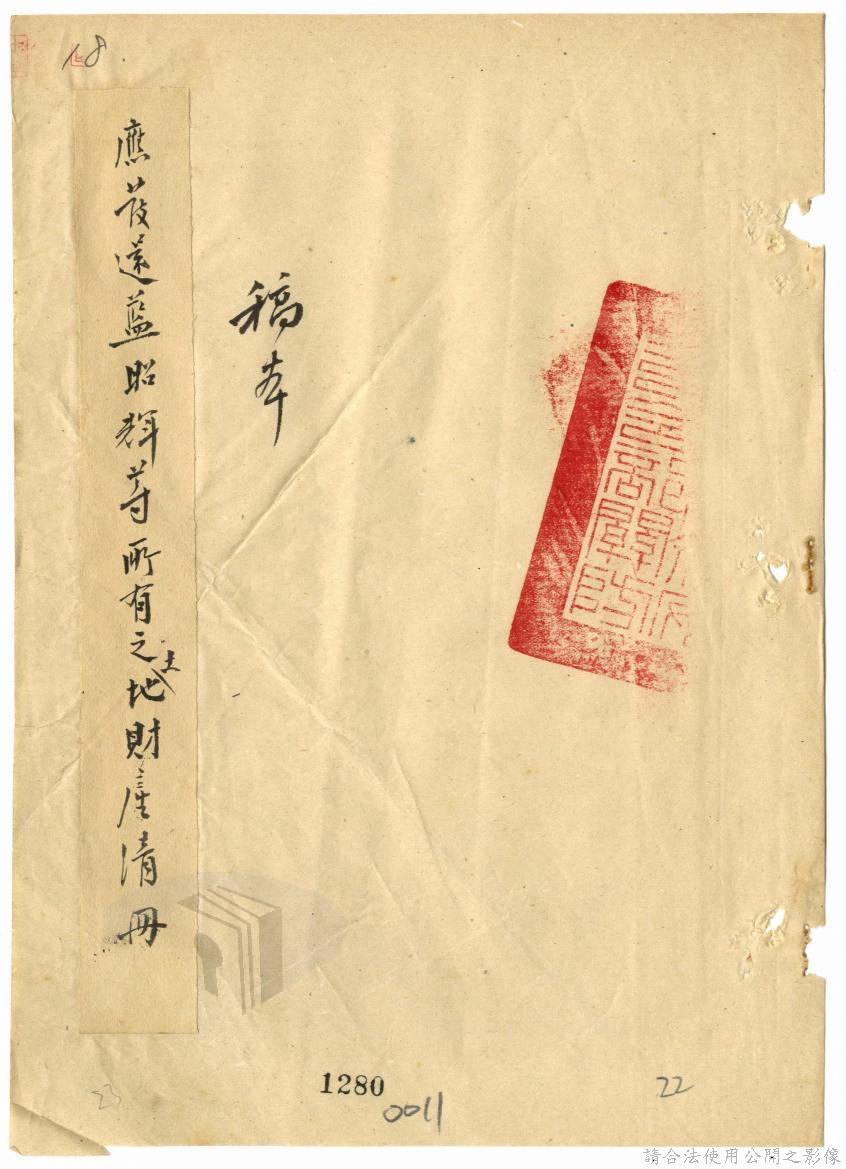 18
稿本
應發還藍昭輝等所有之土地財產清冊
1280
0011
22
23
請合法使用公開之影像